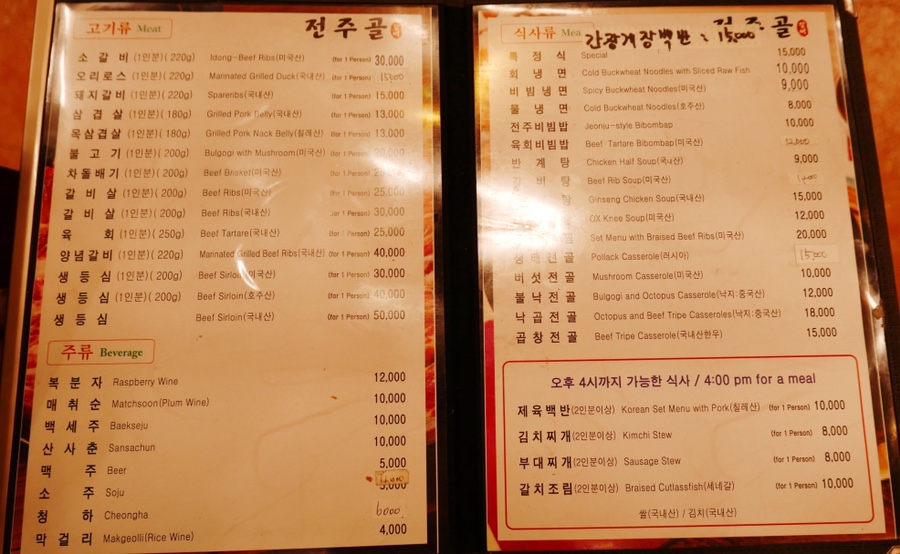 고기류 Meat
전주골
소 갈 비 (1인분)( 220g) Idong-Beef Ribs(미국산) (for 1 Person) 30,000
오리로스 (1인분)( 220g) Marinated Grilled Duck(국내산) (for 1 Person) 15,000
돼지갈비 (1인분)( 220g) Spareribs(국내산) (for 1 Person) 15,000
삼 겹 살 (1인분)( 180g) Grilled Pork Belly(국내산) (for 1 Person) 13,000
목삼겹살 (1인분)( 180g) Grilled Pork Nack Belly(칠레산) (for 1 Person) 13,000
불 고 기 (1인분)( 200g) Bulgogi with Mushroom(미국산) (for 1 Person)
차돌배기 (1인분)( 200g) Beef Brisket(미국산) (for 1 Person)
갈 비 살 (1인분)( 200g) Beef Ribs(미국산) (for 1 Person) 25,000
갈 비 살 (1인분)( 200g) Beef Ribs(국내산) (for 1 Person) 30,000
육 회 (1인분)( 250g) Beef Tartare(국내산) (for 1 Person) 25,000
양념갈비 (1인분)( 220g) Marinated Grilled Beef Ribs(국내산) (for 1 Person) 40,000
생 등 심 (1인분)( 200g) Beef Sirloin(미국산) (for 1 Person) 30,000
생 등 심 (1인분)( 200g) Beef Sirloin(호주산) (for 1 Person) 40,000
생 등 심 Beef Sirloin(국내산) (for 1 Person) 50,000
주류 Beverage
복 분 자 Raspberry Wine 12,000
매 취 순 Matchsoon(Plum Wine) 10,000
백 세 주 Baekseju 10,000
산 사 춘 Sansachun 10,000
맥 주 Beer 5,000
소 주 Soju 5,000
청 하 Cheongha 6000
막 걸 리 Makgeolli(Rice Wine) 4,000
식사류 Mea
간장게장백반 : 15,000
전 주 골
특 정 식 Special 15,000
회 냉 면 Cold Buckwheat Noodles with Sliced Raw Fish 10,000
비빔냉면 Spicy Buckwheat Noodles(미국산) 9,000
물 냉 면 Cold Buckwheat Noodles(호주산) 8,000
전주비빔밥 Jeonju-style Bibombap 10,000
육회비빔밥 Beef Tartare Bibombap(미국산) 12,000
반 계 탕 Chicken Half Soup(국내산) 9,000
갈 비 탕 Beef Rib Soup(미국산)
탕 Ginseng Chicken Soup(국내산) 15,000
OX Knee Soup(미국산) 12,000
Set Menu with Braised Beef Ribs(미국산) 20,000
생태전골 Pollack Casserole(러시아) 15,000
버섯전골 Mushroom Casserole(미국산) 10,000
불낙전골 Bulgogi and Octopus Casserole(낙지:중국산) 12,000
낙곱전골 Octopus and Beef Tripe Casseroles(낙지:중국산) 18,000
곱창전골 Beef Tripe Casserole(국내산한우) 15,000
오후 4시까지 가능한 식사 / 4:00 pm for a meal
제육백반(2인분이상) Korean Set Menu with Pork(칠레산) (for 1 Person) 10,000
김치찌개(2인분이상) Kimchi Stew (for 1 Person) 8,000
부대찌개(2인분이상) Sausage Stew (for 1 Person) 8,000
갈치조림(2인분이상) Braised Cutlassfish(세네갈) (for 1 Person) 10,000
쌀(국내산) / 김치(국내산)